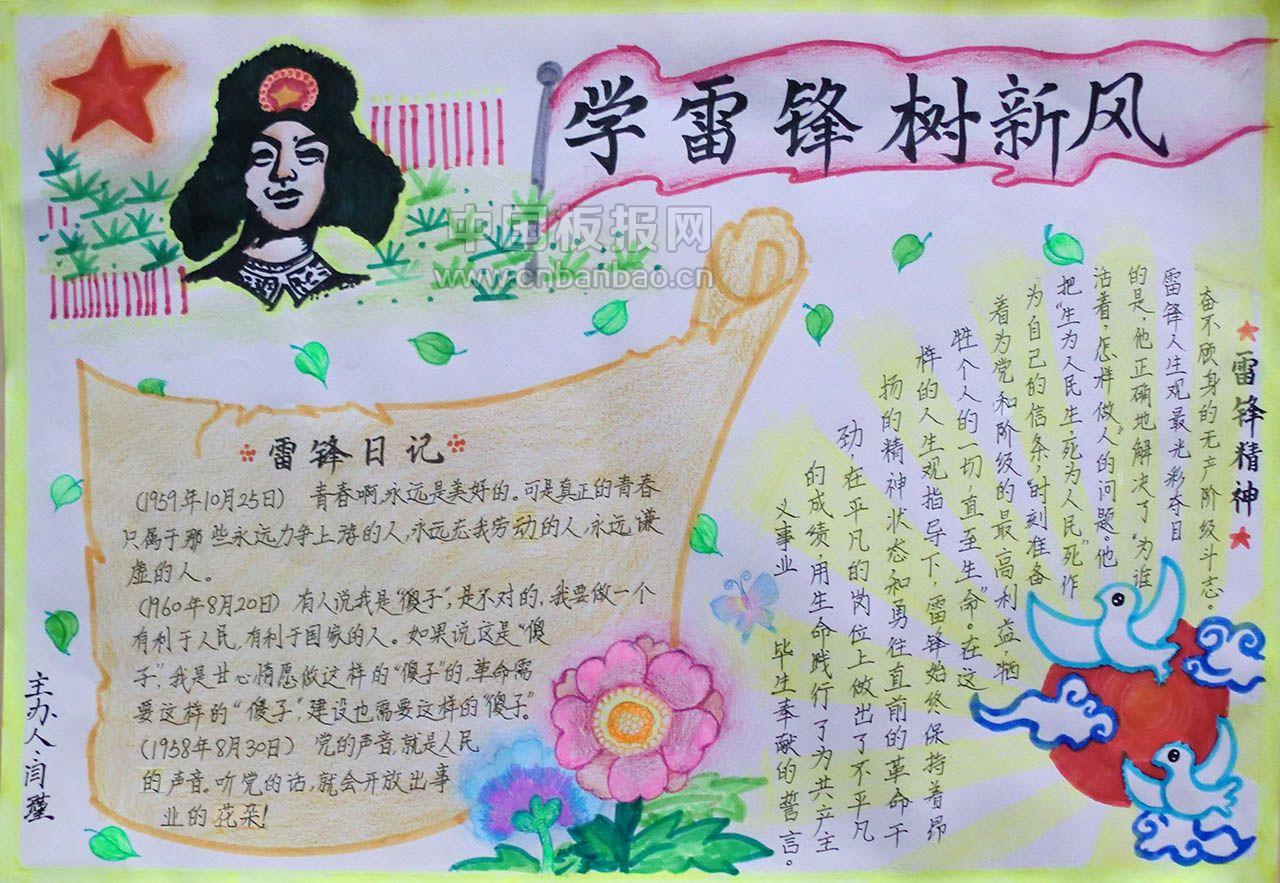 学雷锋树新风
中国板报网
www.cnbanbao.cn
雷锋日记
(1959年10月25日) 青春啊,永远是美好的。可是真正的青春
只属于那些永远力争上游的人,永远忘我劳动的人,永远谦
虚的人。
(1960年8月20日) 有人说我是“傻子”,是不对的,我要做一个
有利于人民,有利于国家的人。如果说这是“傻
子”,我是甘心情愿做这样的“傻子”的,革命需
要这样的“傻子”,建设也需要这样的“傻子”。
(1958年8月30日) 党的声音,就是人民
的声音。听党的话,就会开放出事
业的花朵!
主办人:闫瑾
雷锋精神
奋不顾身的无产阶级斗志。
雷锋人生观最光彩夺目
的是,他正确地解决了“为谁
活着,怎样做人”的问题。他
把“生为人民生,死为人民死”作
为自己的信条,“时刻准备
着为党和阶级的最高利益,牺
牲个人的一切,直至生命”。在这
样的人生观指导下,雷锋始终保持着昂
扬的精神状态和勇往直前的革命干
劲,在平凡的岗位上做出了不平凡
的成绩,用生命践行了为共产主
义事业 毕生奉献的誓言。